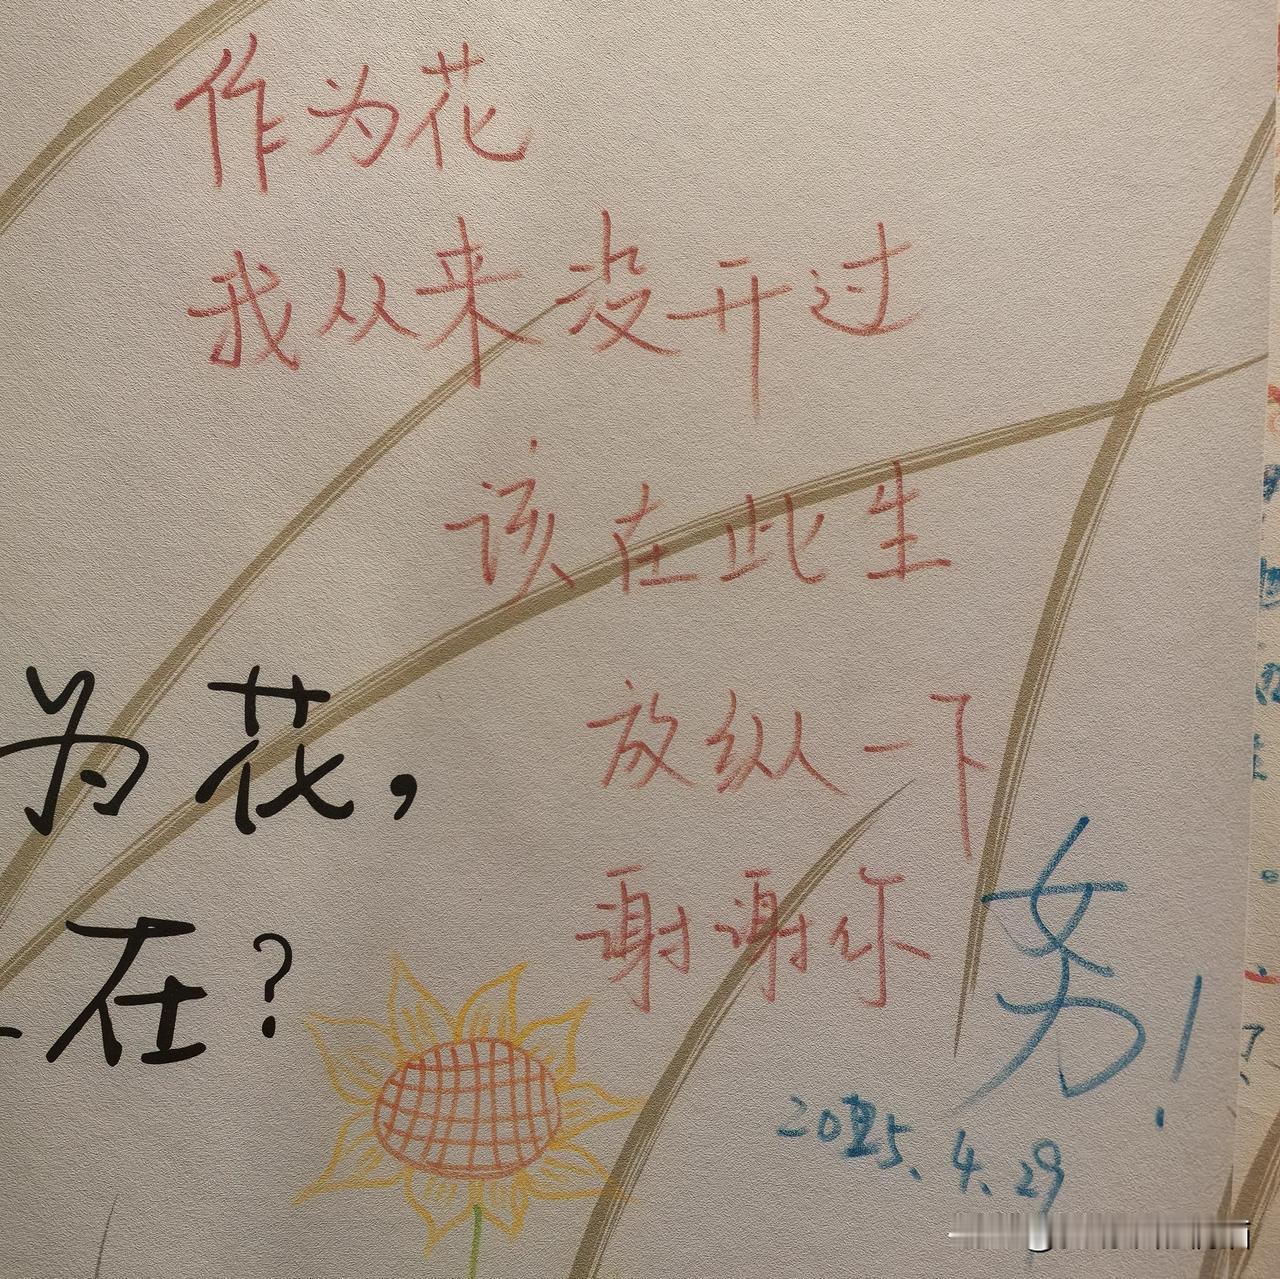 作为花
我从来没开过
该在此生
放纵一下
谢谢你
为花，
在？
2025.4.29